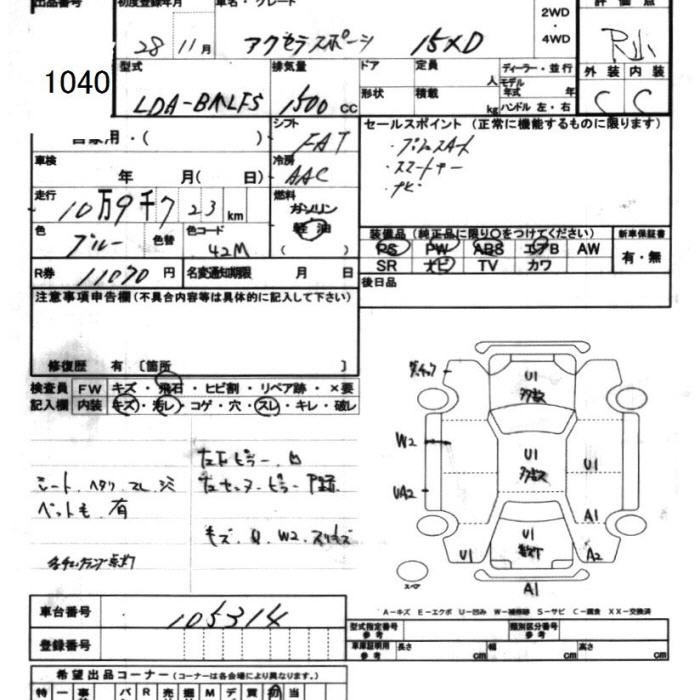 出品番号 初度登録年月 車名・グレード 評価点
28 11月 アクセラスポーツ 15XD 2WD ・ 4WD R
1040
型式 排気量 ドア 定員 人 ディーラー・並行 外装 内装
LDA-BMLFS 1500 cc 形状 積載 kg モデル年式 年 ハンドル 左・右 C C
自家用・( ) シフト FAT セールスポイント (正常に機能するものに限ります)
・プッシュスタート
車検 年 月( 日) 冷房 AAC ・スマートキー
・ナビ
走行 10万9千723km 燃料 ガソリン 軽油 ( )
色 ブルー 色替 色コード 42M
装備品 (純正品に限り○をつけてください) 新車保証書
PS PW ABS エアB AW 有・無
SR ナビ TV カワ
R券 11070円 名変通知期限 月 日 後日品
注意事項申告欄(不具合内容等は具体的に記入して下さい)
修復歴 有 〔箇所 〕
検査員 FW キズ・飛石・ヒビ割・リペア跡・×要
記入欄 内装 キズ・汚レ・コゲ・穴・スレ・キレ・破レ
シート、ヘタリ スレ シミ
ペットも 有
キズ
W2
U1
U1
U1
UA2
A1
U1
U1
A2
A1
スペア
A-キズ E-エクボ U-凹み W-補修跡 S-サビ C-腐食 XX-交換済
車台番号 105314
登録番号
型式指定番号 参考 類別区分番号 参考
車庫証明用 参考 長さ cm 幅 cm 高さ cm
希望出品コーナー (コーナーは各会場により異なります。)
特 一 事 パ R 売 掘 M デ 貿 初 当